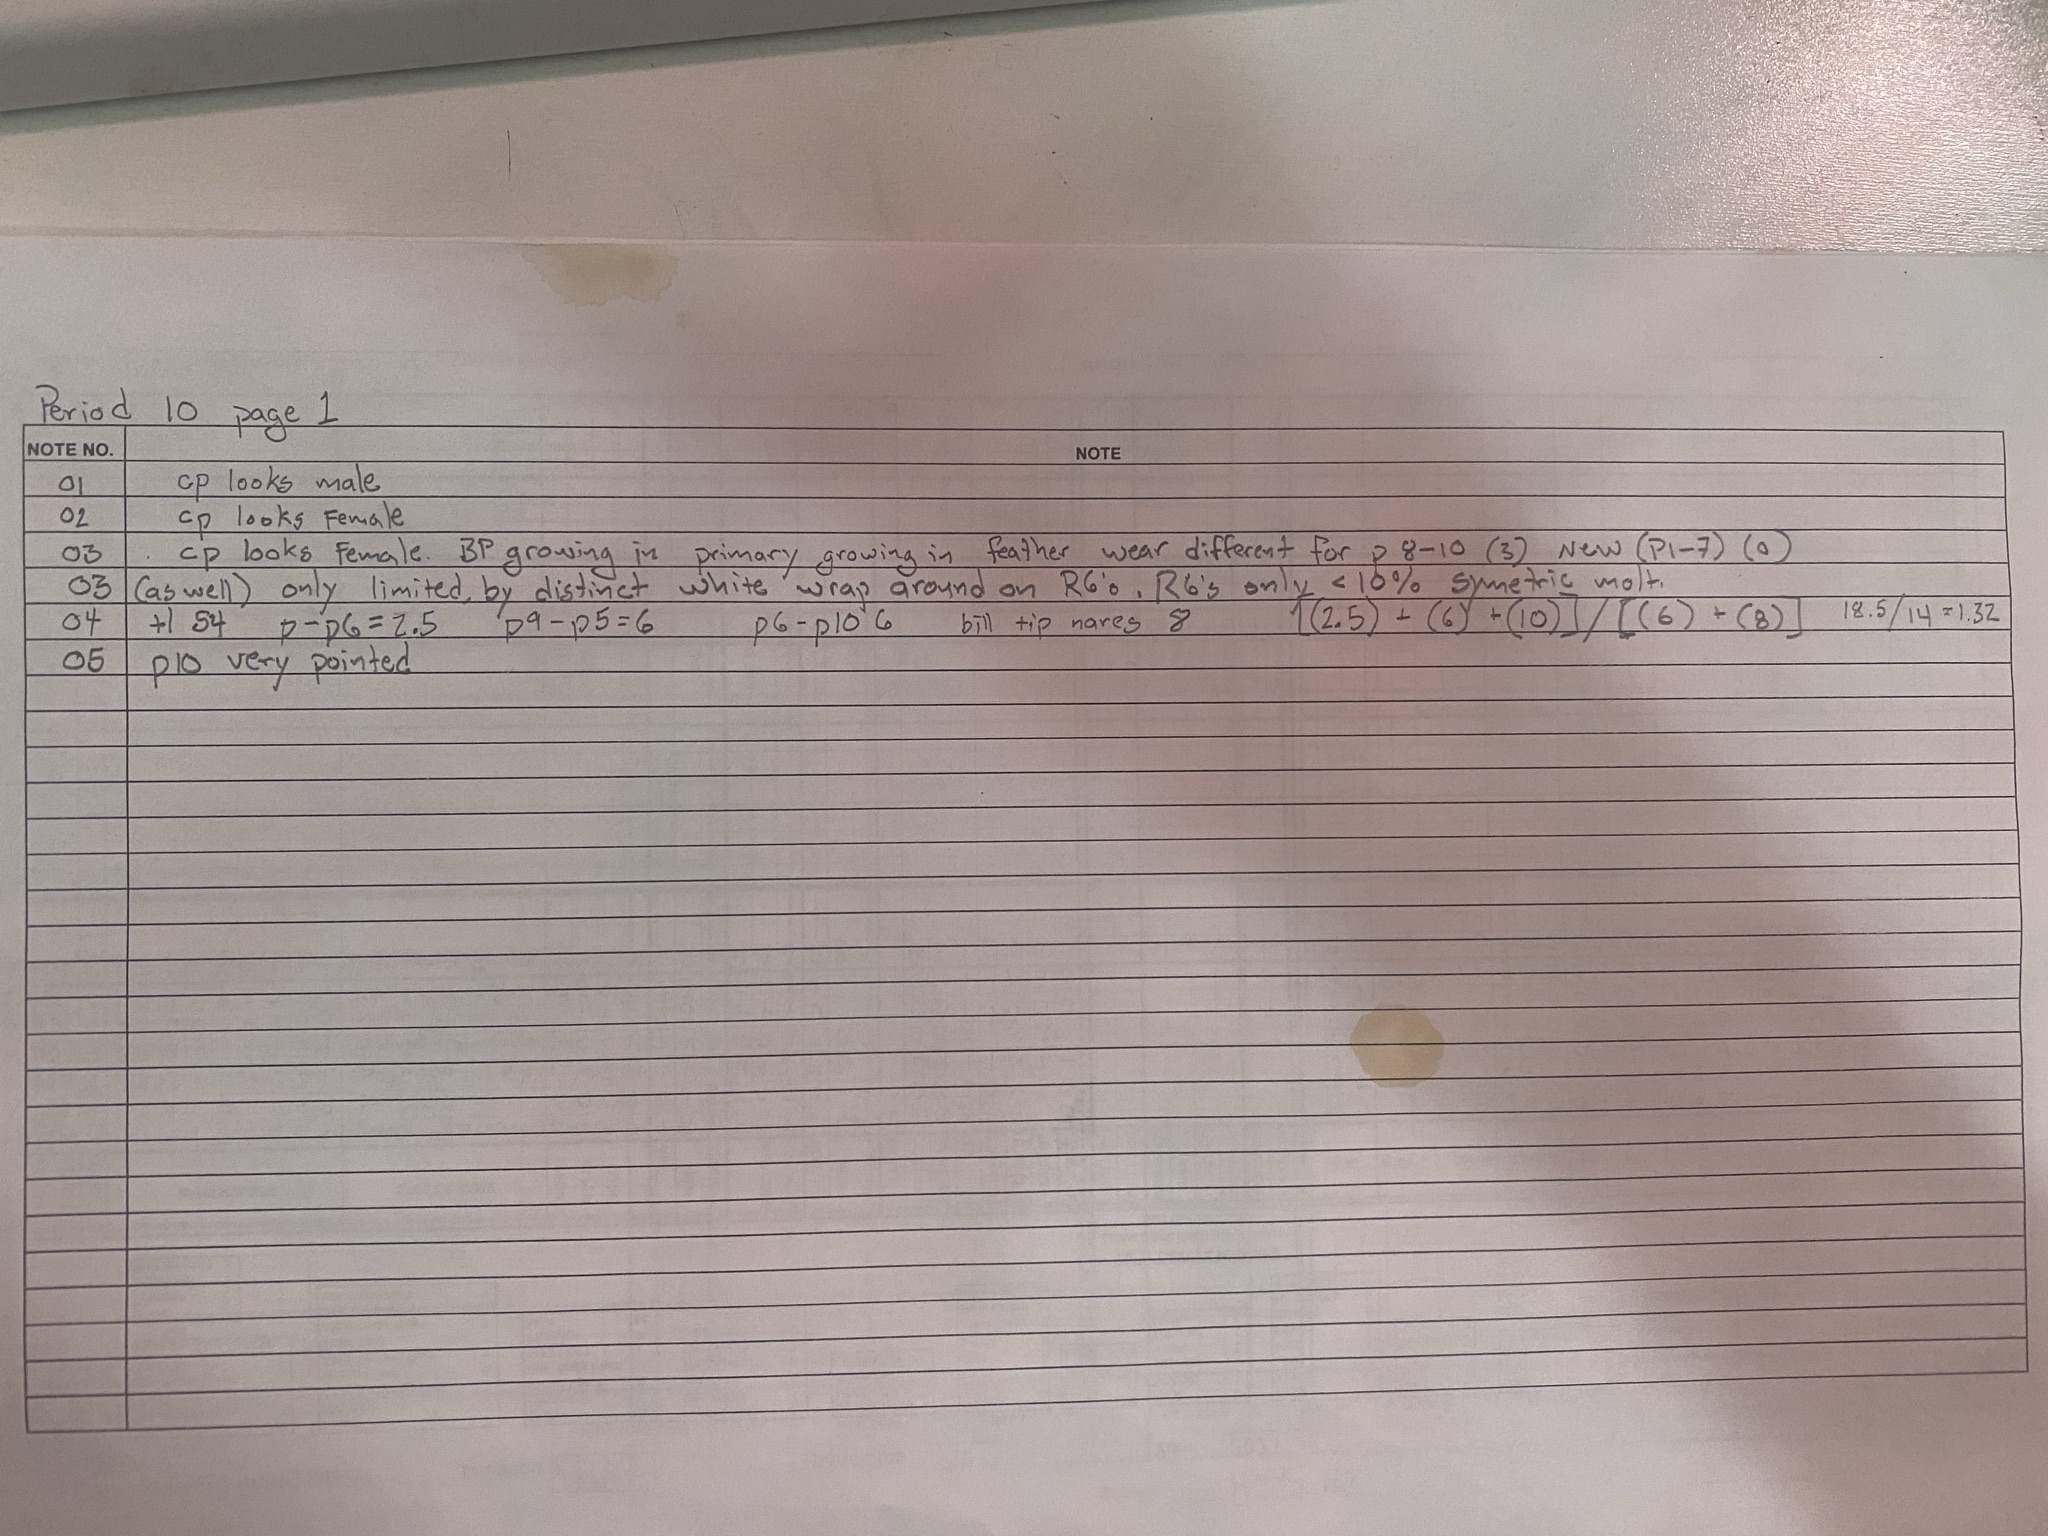 Period 10 page 1
NOTE NO. NOTE
01 cp looks male
02 cp looks Female
03 cp looks Female. BP growing in primary growing in feather wear different for p 8-10 (3) New (P1-7) (0)
03 (as well) only limited, by distinct white wrap around on R6's. R6's only <10% symetric molt.
04 +l 54 p-p6=2.5 p9-p5=6 p6-p10 6 bill tip nares 8 [(2.5) + (6) + (10)] / [(6) + (8)] 18.5/14 = 1.32
05 p10 very pointed